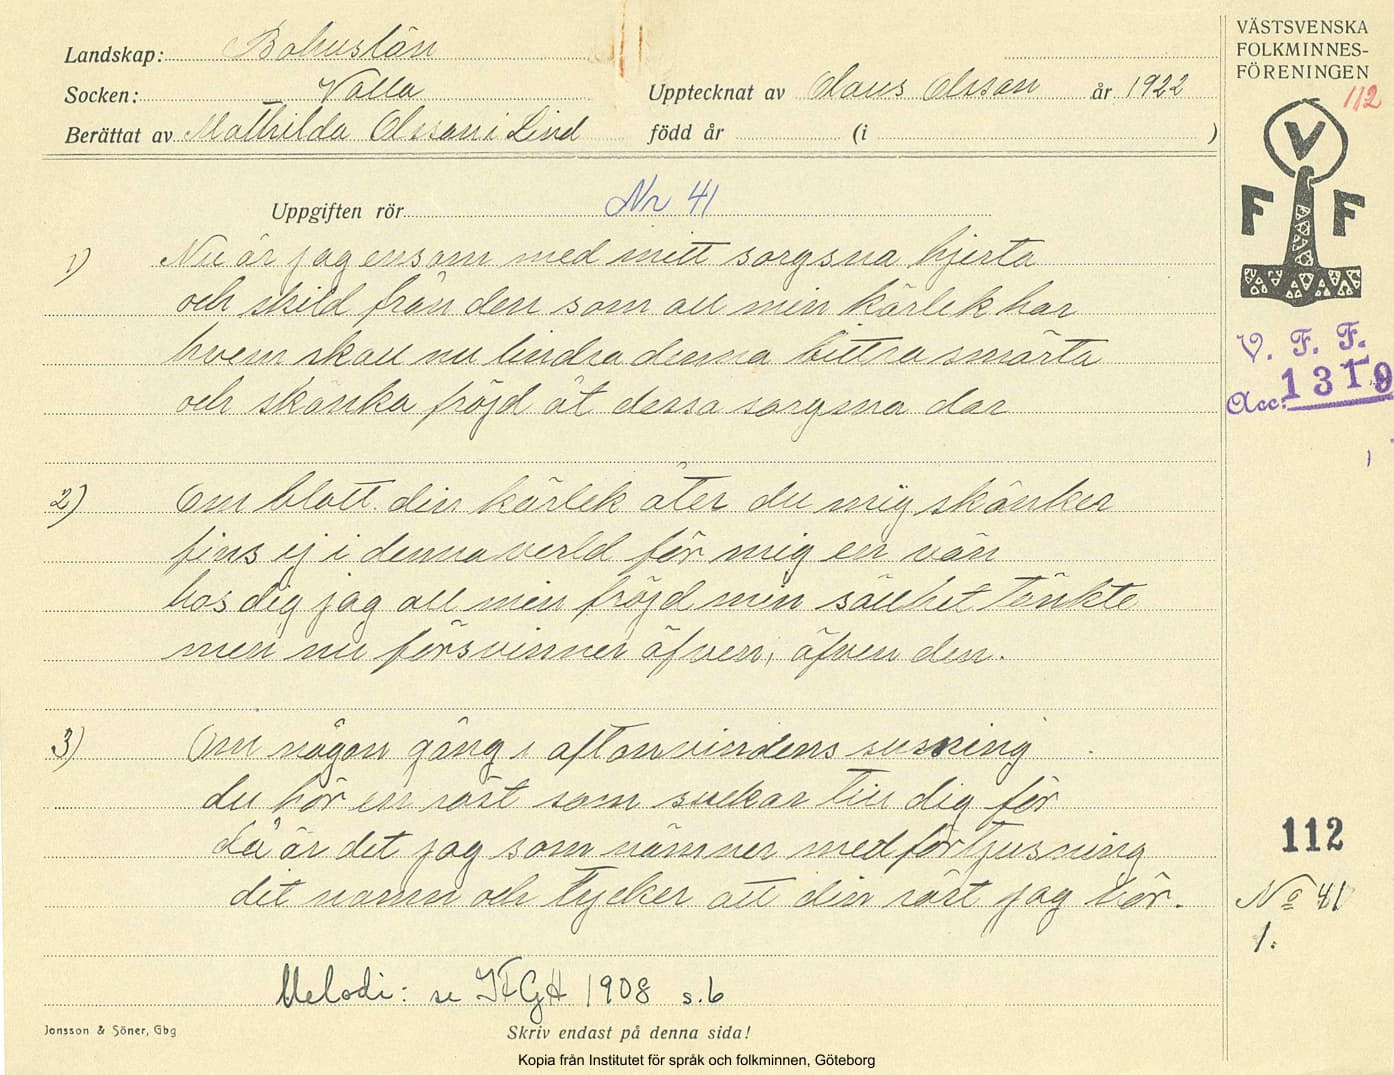 Landskap: Bohuslän
Socken: Valla
Upptecknat av Olaus Olsson år 1922
Berättat av Mathilda Olsson i Lind född år (i )
VÄSTSVENSKA
FOLKMINNES-
FÖRENINGEN
112
V
F F
V. F. F.
Acc: 1319
Uppgiften rör Nr 41
1) Nu är jag ensam med mitt sorgsna hjerta
och skild från den som all min kärlek har
hvem skall nu lindra denna bittra smärta
och skänka fröjd åt dessa sorgsna dar
2) Om blott din kärlek åter du mig skänker
fins ej i denna verld för mig en vän
hos dig jag all min fröjd min sällhet tänkte
men nu försvinner äfven, äfven den.
3) Om någon gång i aftonvindens susning
du hör en röst som suckar till dig för
Då är det jag som nämner med förtjusning
dit namn och tycker att din röst jag hör.
112
No 41
1:
Melodi: se IFGH 1908 s. 6
Jonsson & Söner, Gbg
Skriv endast på denna sida!
Kopia från Institutet för språk och folkminnen, Göteborg